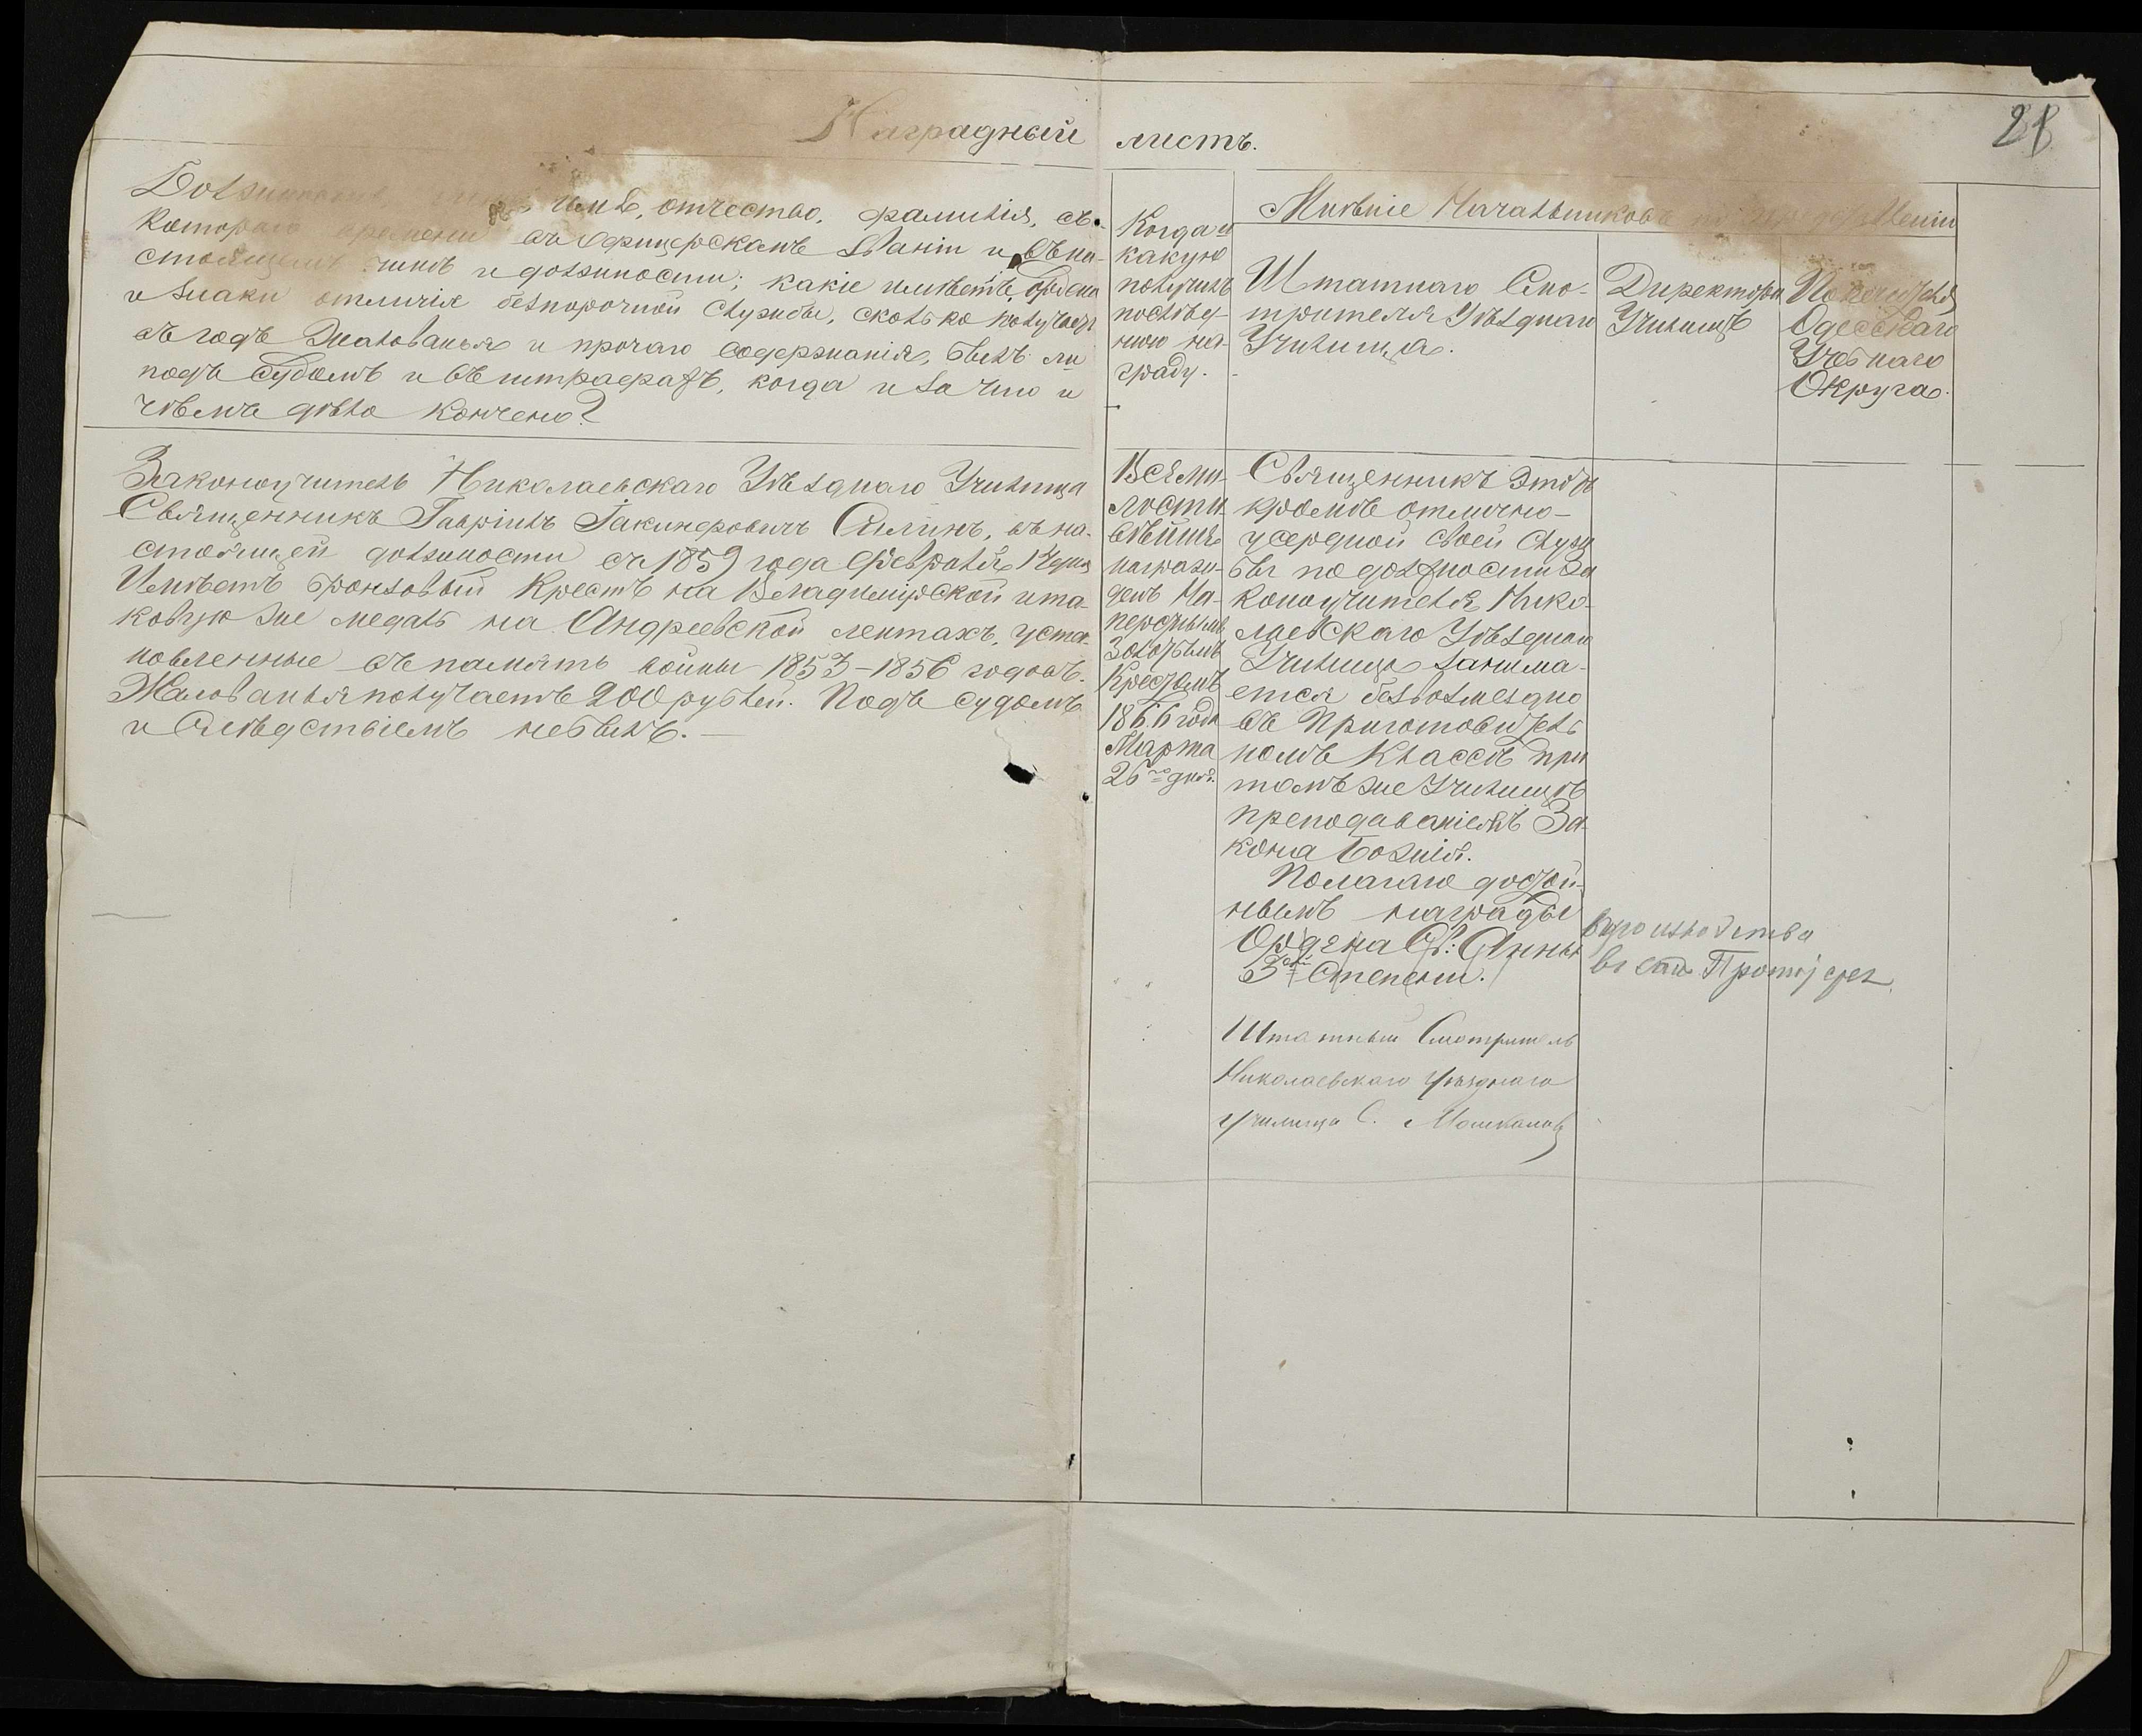 21
Наградный листъ.
имя, отчество, фамилія, съ
котораго времени въ Офицерскомъ званіи и въ на-
стоящемъ чинѣ и должности; какіе имѣетъ ордена
и знаки отличія безпорочной службы, сколько получаетъ
въ годъ жалованья и прочаго содержанія, былъ ли
подъ судомъ и въ штрафахъ, когда и за что и
чѣмъ дѣло кончено?
Когда и
какую
получилъ
послѣд-
нюю на-
граду.
Мнѣніе Начальниковъ
Штатнаго Смо-
трителя Уѣзднаго
Училища.
Директора
Училищъ
Попечителя
Одесскаго
Учебнаго
Округа.
Законоучитель Николаевскаго Уѣзднаго Училища
Священникъ Гавріилъ Іакинфовичъ Селинъ, въ на-
стоящей должности съ 1859 года Февраля
Имѣетъ бронзовый Крестъ на Владимірской и та-
ковую же медаль на Андреевской лентахъ, уста-
новленные въ память войны 1853-1856 годовъ.
Жалованья получаетъ 200 рублей. Подъ судомъ
и Слѣдствіемъ не былъ. —
Всеми-
лости-
вѣйше
награж-
денъ На-
перснымъ
Золотымъ
Крестомъ
1866 года
Марта
26го дня.
Священникъ этотъ
кромѣ отлично-
усердной своей служ
бы по должности За
коноучителя Нико-
лаевскаго Уѣзднаго
Училища занима-
ется безвозмездно
въ Приготовитель
номъ Классѣ при
томъ же Училищѣ
преподаваніемъ За-
кона Божія.
Полагаю достой-
нымъ награды
Ордена Св: Анны
3ей Степени.
производства
въ санъ Протоіерея
Штатный Смотритель
Николаевскаго Уѣзднаго
Училища С.